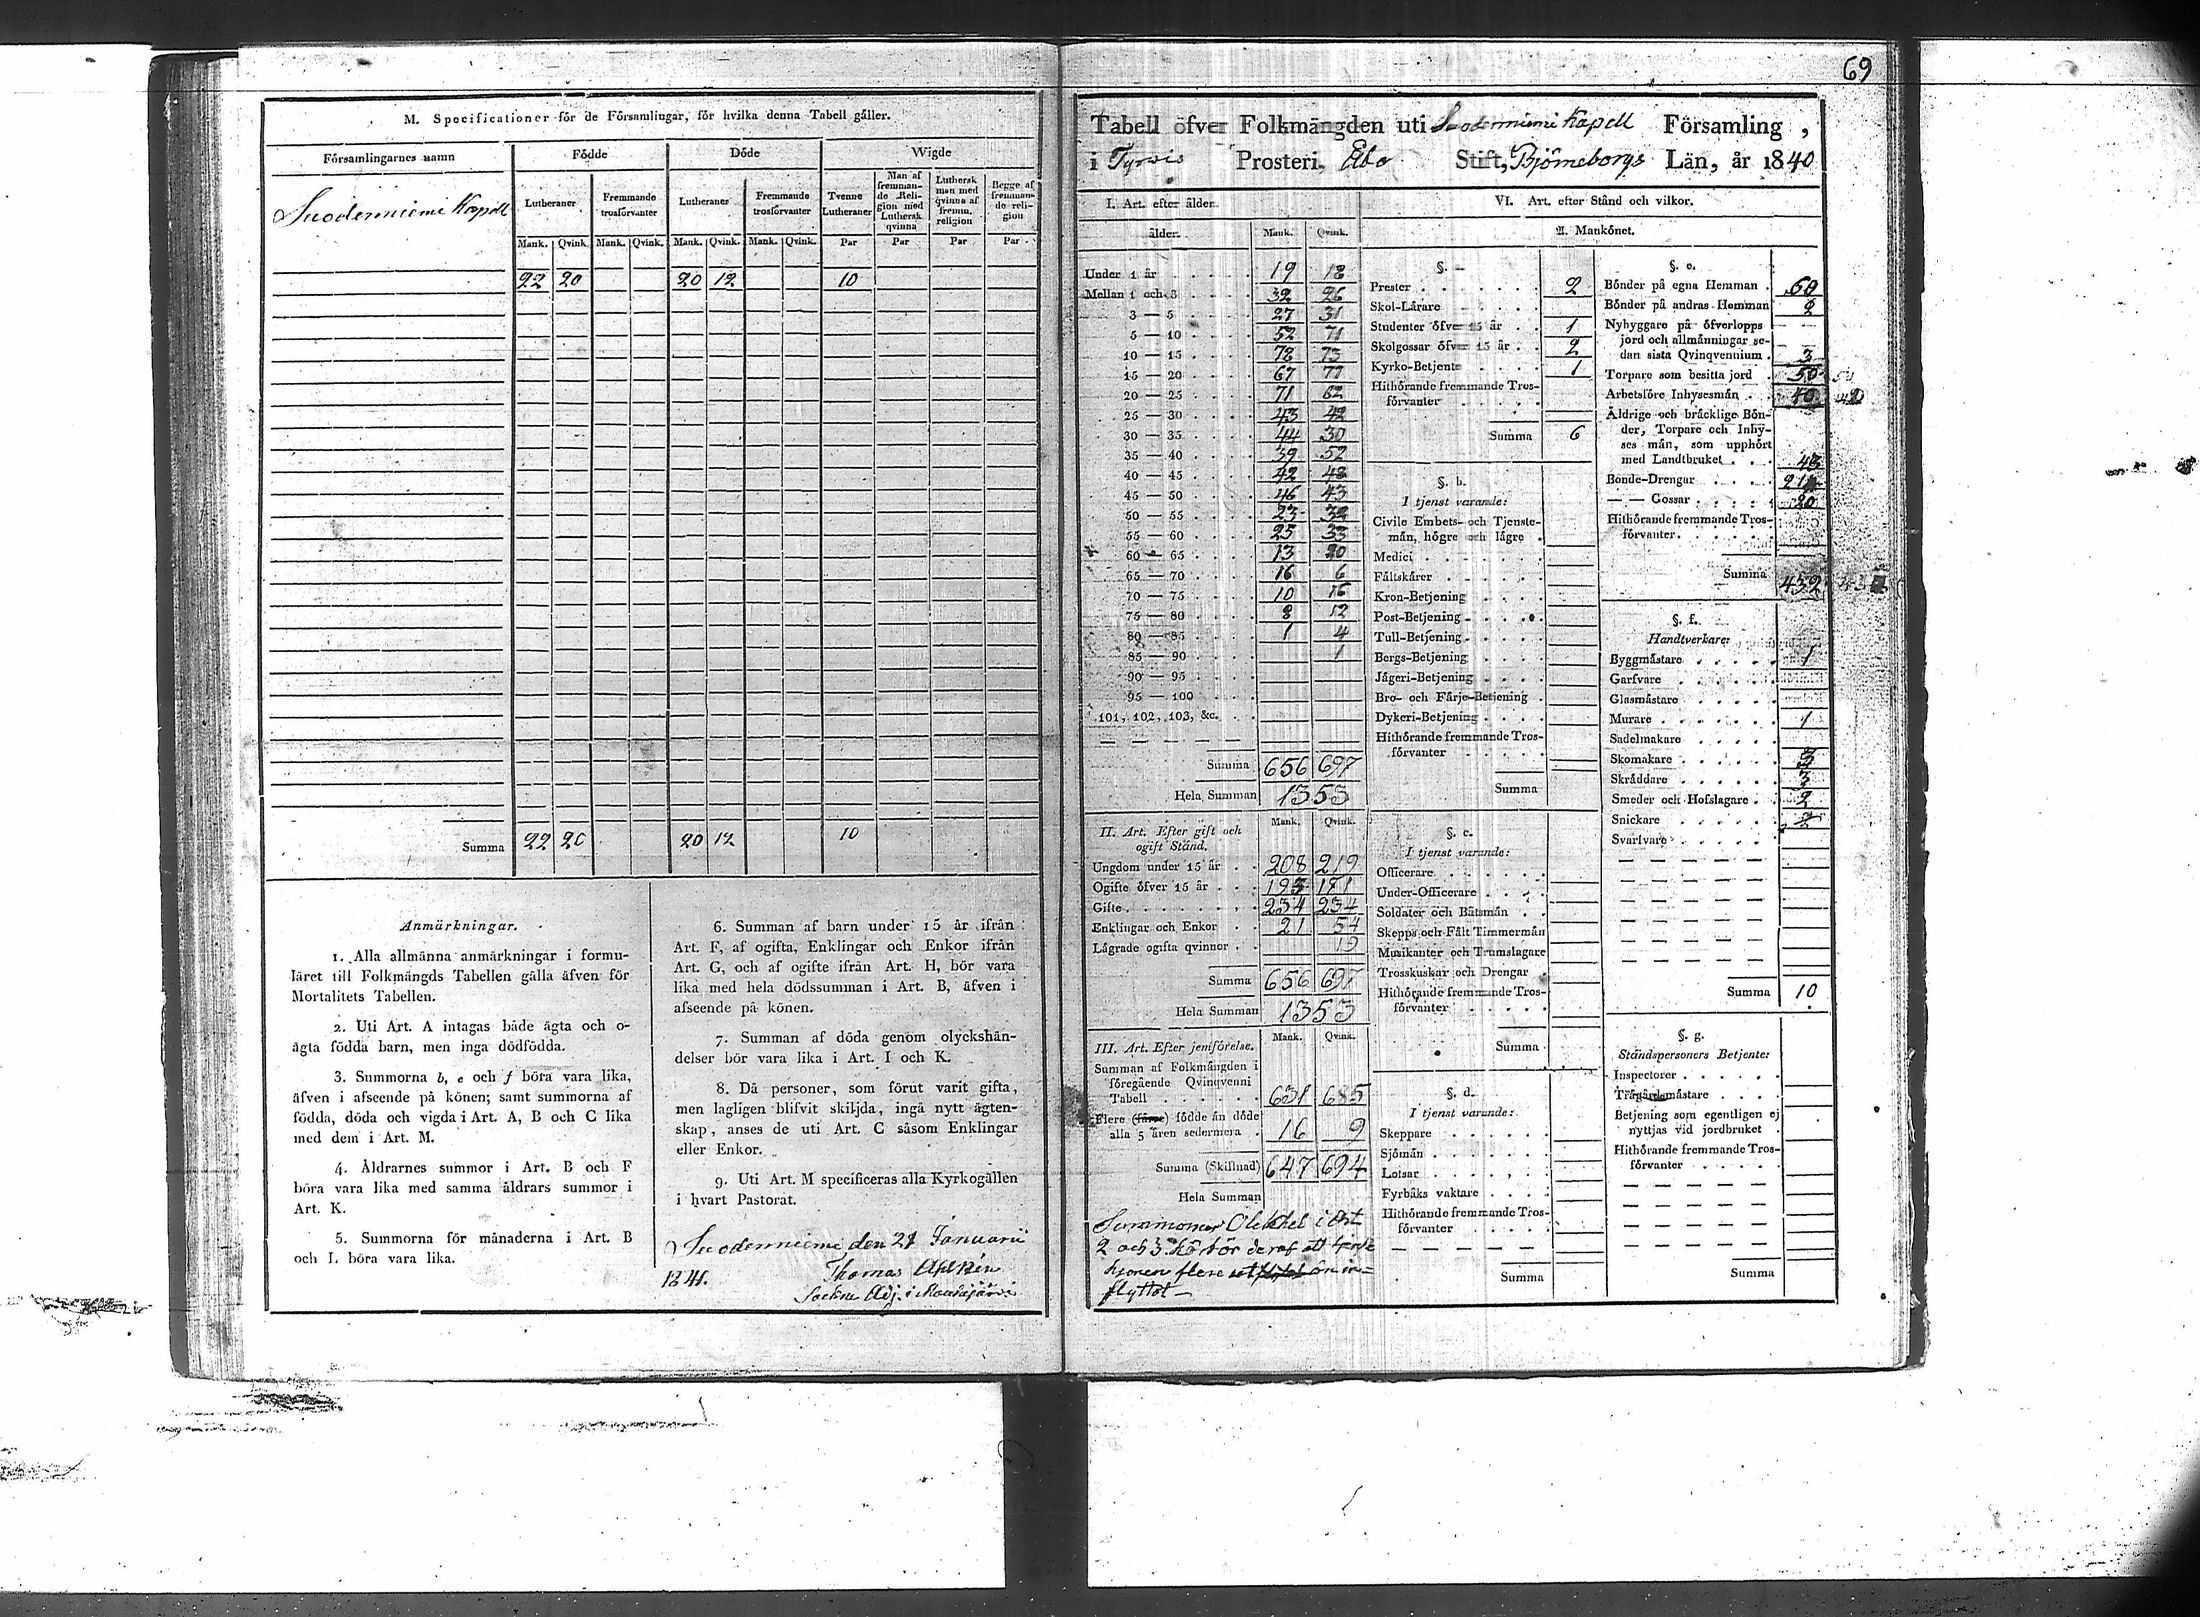 69
M. Specificationer för de Församlingar, för hvilka denna Tabell gäller.
Församlingarnes namn Födde Döde Wigde
Lutheraner Fremmande trosförvanter Lutheraner Fremmande trosförvanter Tvenne Lutheraner Man af fremmande Religion med Luthersk qvinna Luthersk man med qvinna af fremm. religion Begge af fremmande religion
Mank. Qvink. Mank. Qvink. Mank. Qvink. Mank. Qvink. Par Par Par Par
Suodenniemi Kapell
22 20 20 12 10
Summa 22 20 20 12 10
Anmärkningar.
1. Alla allmänna anmärkningar i formu-
läret till Folkmängds Tabellen gälla äfven för
Mortalitets Tabellen.
2. Uti Art. A intagas både ägta och o-
ägta födda barn, men inga dödfödda.
3. Summorna b, e och f böra vara lika,
äfven i afseende på könen; samt summorna af
födda, döda och vigda i Art. A, B och C lika
med dem i Art. M.
4. Åldrarnes summor i Art. B och F
böra vara lika med samma åldrars summor i
Art. K.
5. Summorna för månaderna i Art. B
och L böra vara lika.
6. Summan af barn under 15 år ifrån
Art. F, af ogifta, Enklingar och Enkor ifrån
Art. G, och af ogifte ifrån Art. H, bör vara
lika med hela dödssumman i Art. B, äfven i
afseende på könen.
7. Summan af döda genom olyckshän-
delser bör vara lika i Art. I och K.
8. Då personer, som förut varit gifta,
men lagligen blifvit skiljda, ingå nytt ägten-
skap, anses de uti Art. C såsom Enklingar
eller Enkor.
9. Uti Art. M specificeras alla Kyrkogällen
i hvart Pastorat.
Suodenniemi den 21 Januarii
1841. Thomas
Sockne Adj. i Mouhijärvi
Tabell öfver Folkmängden uti Suodenniemi Kapell Församling,
i Tyrvis Prosteri, Åbo Stift, Björneborgs Län, år 1840
I. Art. efter ålder.
ålder. Mank. Qvink.
Under 1 år 19 18
Mellan 1 och 3 32 26
3 — 5 27 31
5 — 10 52 71
10 — 15 78 73
15 — 20 67 77
20 — 25 71 62
25 — 30 43 42
30 — 35 44 30
35 — 40 39 52
40 — 45 42 48
45 — 50 46 43
50 — 55 23 32
55 — 60 25 33
60 — 65 13 20
65 — 70 16 6
70 — 75 10 16
75 — 80 8 12
80 — 85 1 4
85 — 90 1
90 — 95
95 — 100
101, 102, 103, &c.
Summa 656 697
Hela Summan 1353
II. Art. Efter gift och ogift Stånd. Mank. Qvink.
Ungdom under 15 år 208 219
Ogifte öfver 15 år 193 171
Gifte 234 234
Enklingar och Enkor 21 54
Lägrade ogifta qvinnor 19
Summa 656 697
Hela Summan 1353
III. Art. Efter jemförelse. Mank. Qvink.
Summan af Folkmängden i
föregående Qvinqvenni
Tabell 631 685
Flere (färre) födde än döde
alla 5 åren sedermera 16 9
Summa (Skillnad) 647 694
Hela Summan
2 och 3
flere
flyttat
VI. Art. efter Stånd och vilkor.
A. Mankönet.
§. a.
Prester 2
Skol-Lärare
Studenter öfver 15 år 1
Skolgossar öfver 15 år 2
Kyrko-Betjente 1
Hithörande fremmande Tros-
förvanter
Summa 6
§. b.
I tjenst varande:
Civile Embets- och Tjenste-
män, högre och lägre
Medici
Fältskärer
Kron-Betjening
Post-Betjening
Tull-Betjening
Bergs-Betjening
Jägeri-Betjening
Bro- och Färje-Betjening
Dykeri-Betjening
Hithörande fremmande Tros-
förvanter
Summa
§. c.
I tjenst varande:
Officerare
Under-Officerare
Soldater och Båtsmän
Skepps och Fält Timmermän
Musikanter och Trumslagare
Trosskuskar och Drengar
Hithörande fremmande Tros-
förvanter
Summa
§. d.
I tjenst varande:
Skeppare
Sjömän
Lotsar
Fyrbåks vaktare
Hithörande fremmande Tros-
förvanter
Summa
§. e.
Bönder på egna Hemman
Bönder på andras Hemman 2
Nybyggare på öfverlopps
jord och allmänningar se-
dan sista Qvinqvennium 3
Torpare som besitta jord
Arbetsföre Inhysesmän
Åldrige och bräcklige Bön-
der, Torpare och Inhy-
ses män, som upphört
med Landtbruket 43
Bonde-Drengar
— — Gossar 20
Hithörande fremmande Tros-
förvanter
Summa 432
§. f.
Handtverkare:
Byggmästare 1
Garfvare
Glasmästare
Murare 1
Sadelmakare
Skomakare 3
Skräddare 3
Smeder och Hofslagare 2
Snickare
Svarfvare
Summa 10
§. g.
Ståndspersoners Betjente:
Inspectorer
Trägårdsmästare
Betjening som egentligen ej
nyttjas vid jordbruket
Hithörande fremmande Tros-
förvanter
Summa